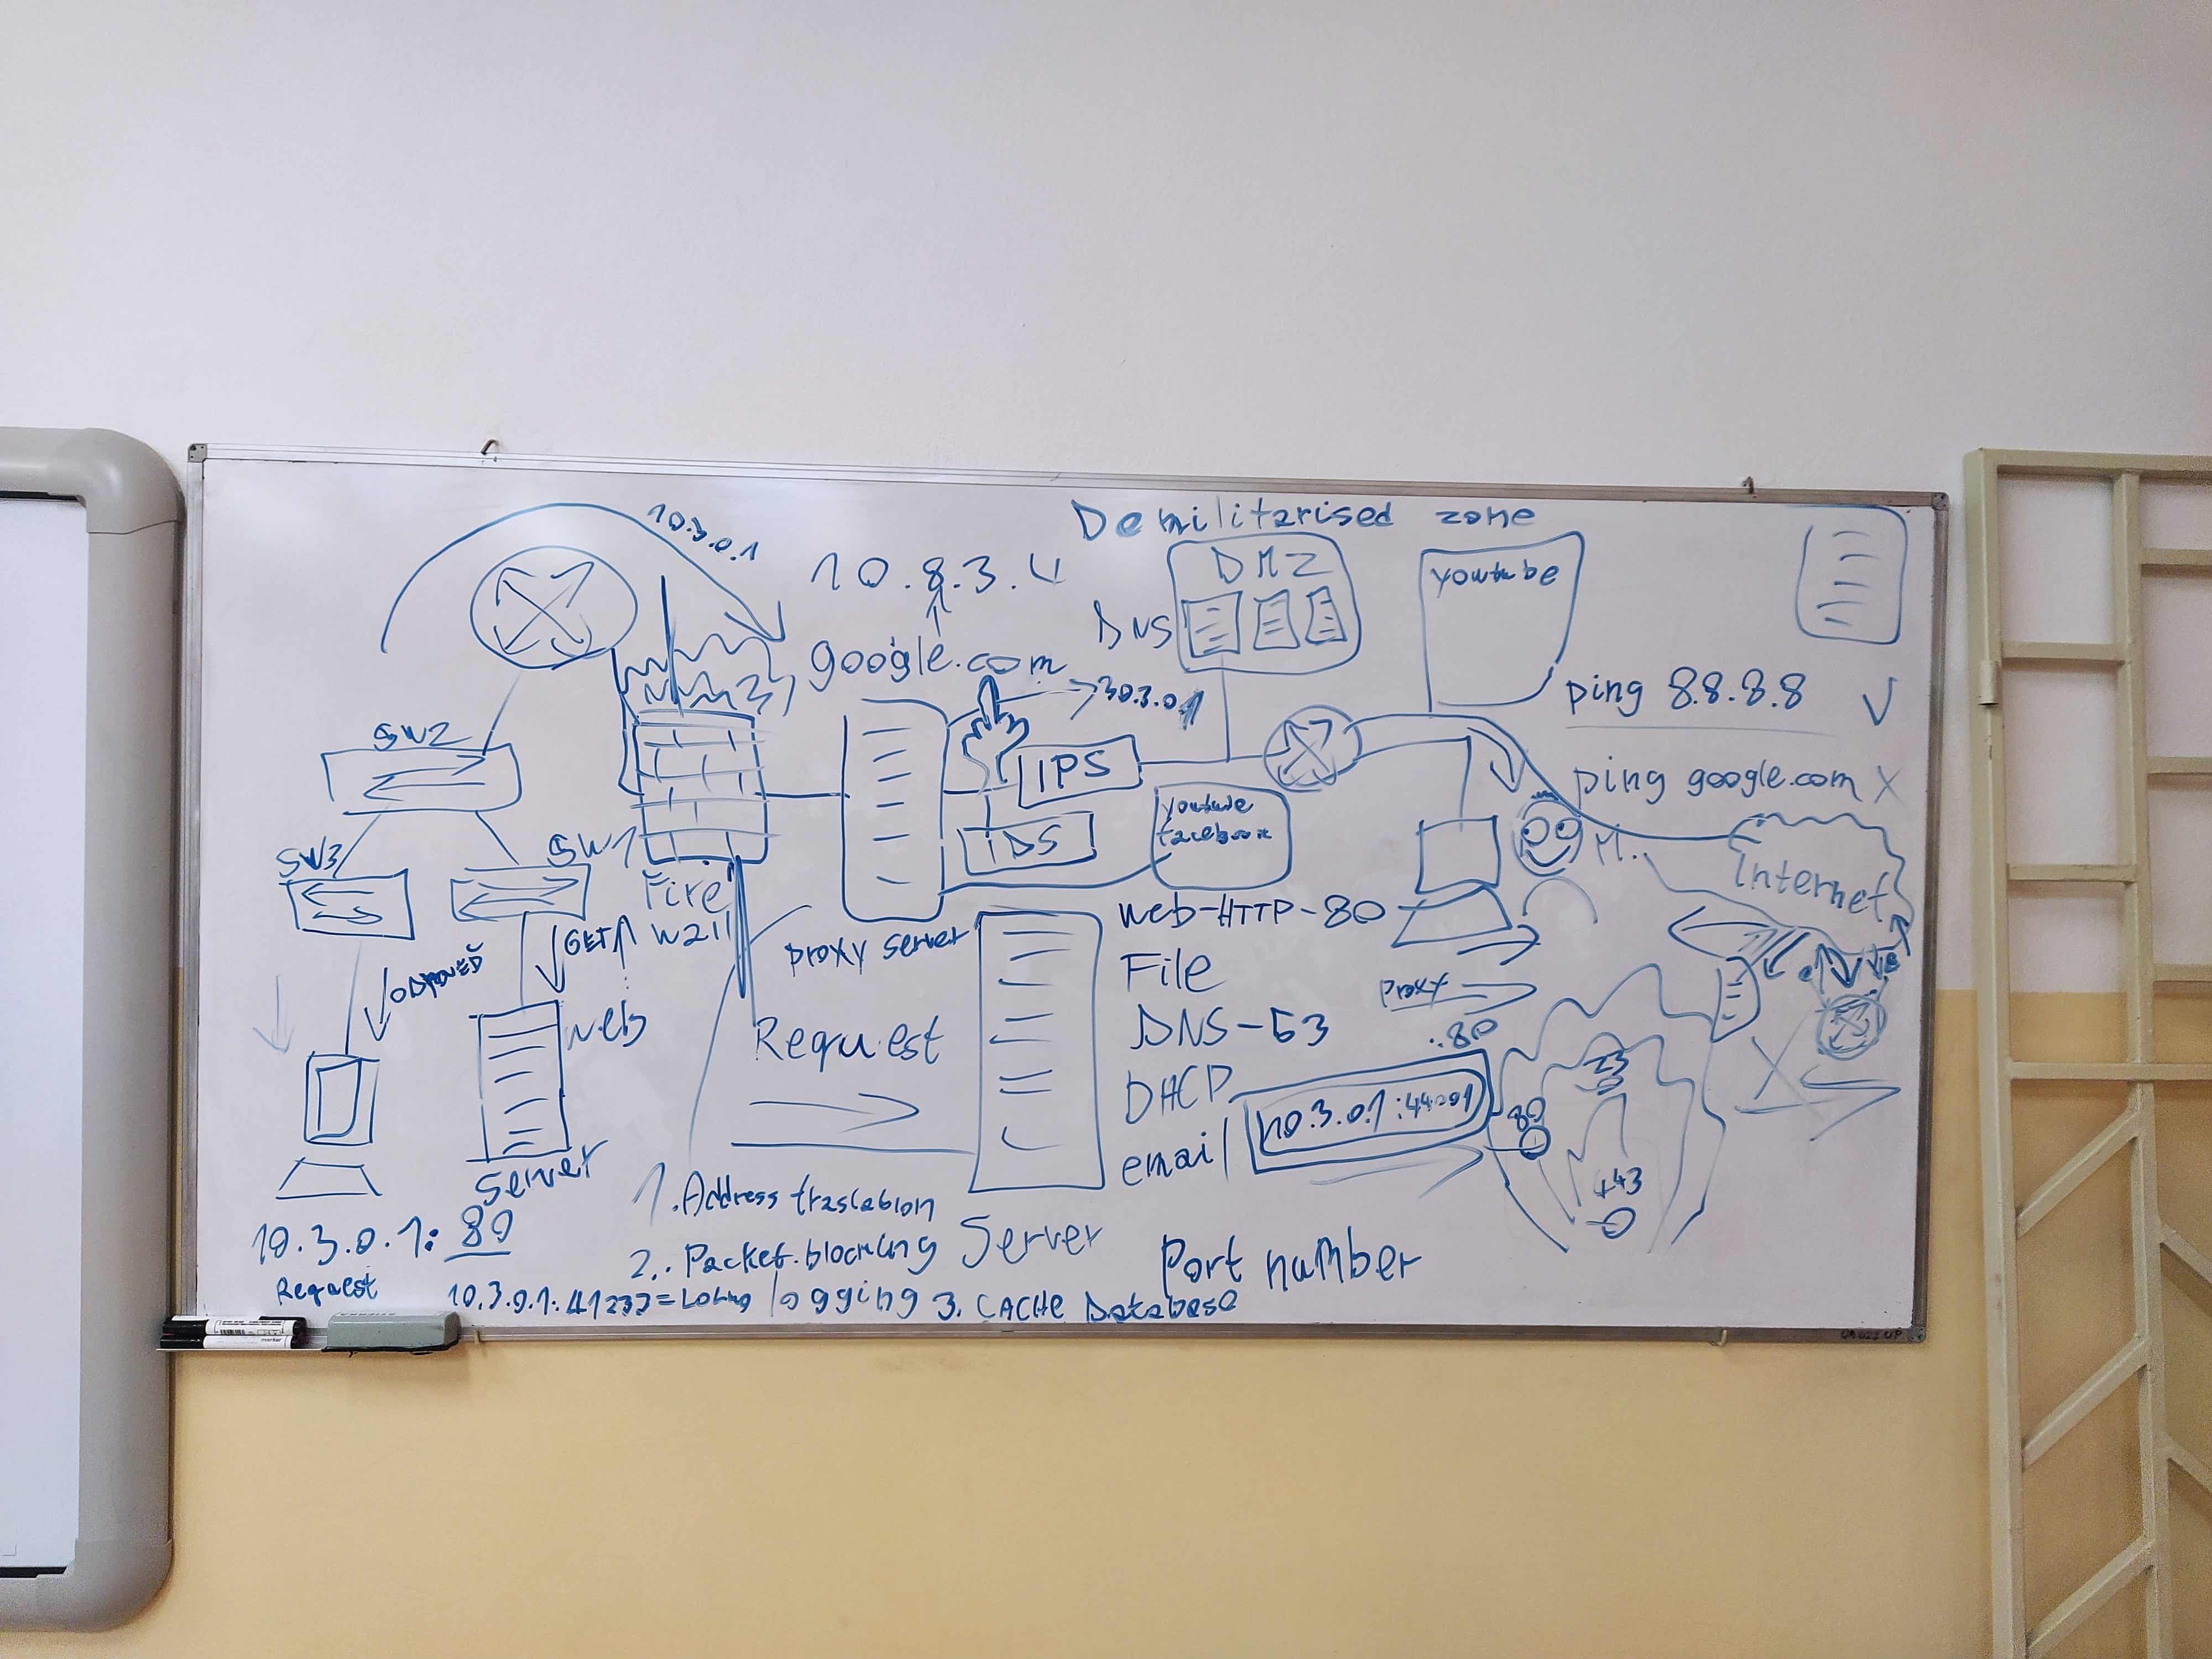 Demilitarised zone
10.3.0.1
10.8.3.4
DMZ
DNS
youtube
google.com
30.3.0.1
ping 8.8.8.8 V
ping google.com X
SW2
IPS
IDS
youtube
facebook
SW3
SW1
Firewall
M..
Internet
web-HTTP-80
proxy server
GET
ODPOVEĎ
File
proxy
web
Request
DNS-53
:80
23
DHCP
10.3.0.1:44201
80
email
443
server
1. Address traslation
10.3.0.1:80
2. Packet blocking
Server
Port number
Request
10.3.0.1: =
logging
3. CACHE Database